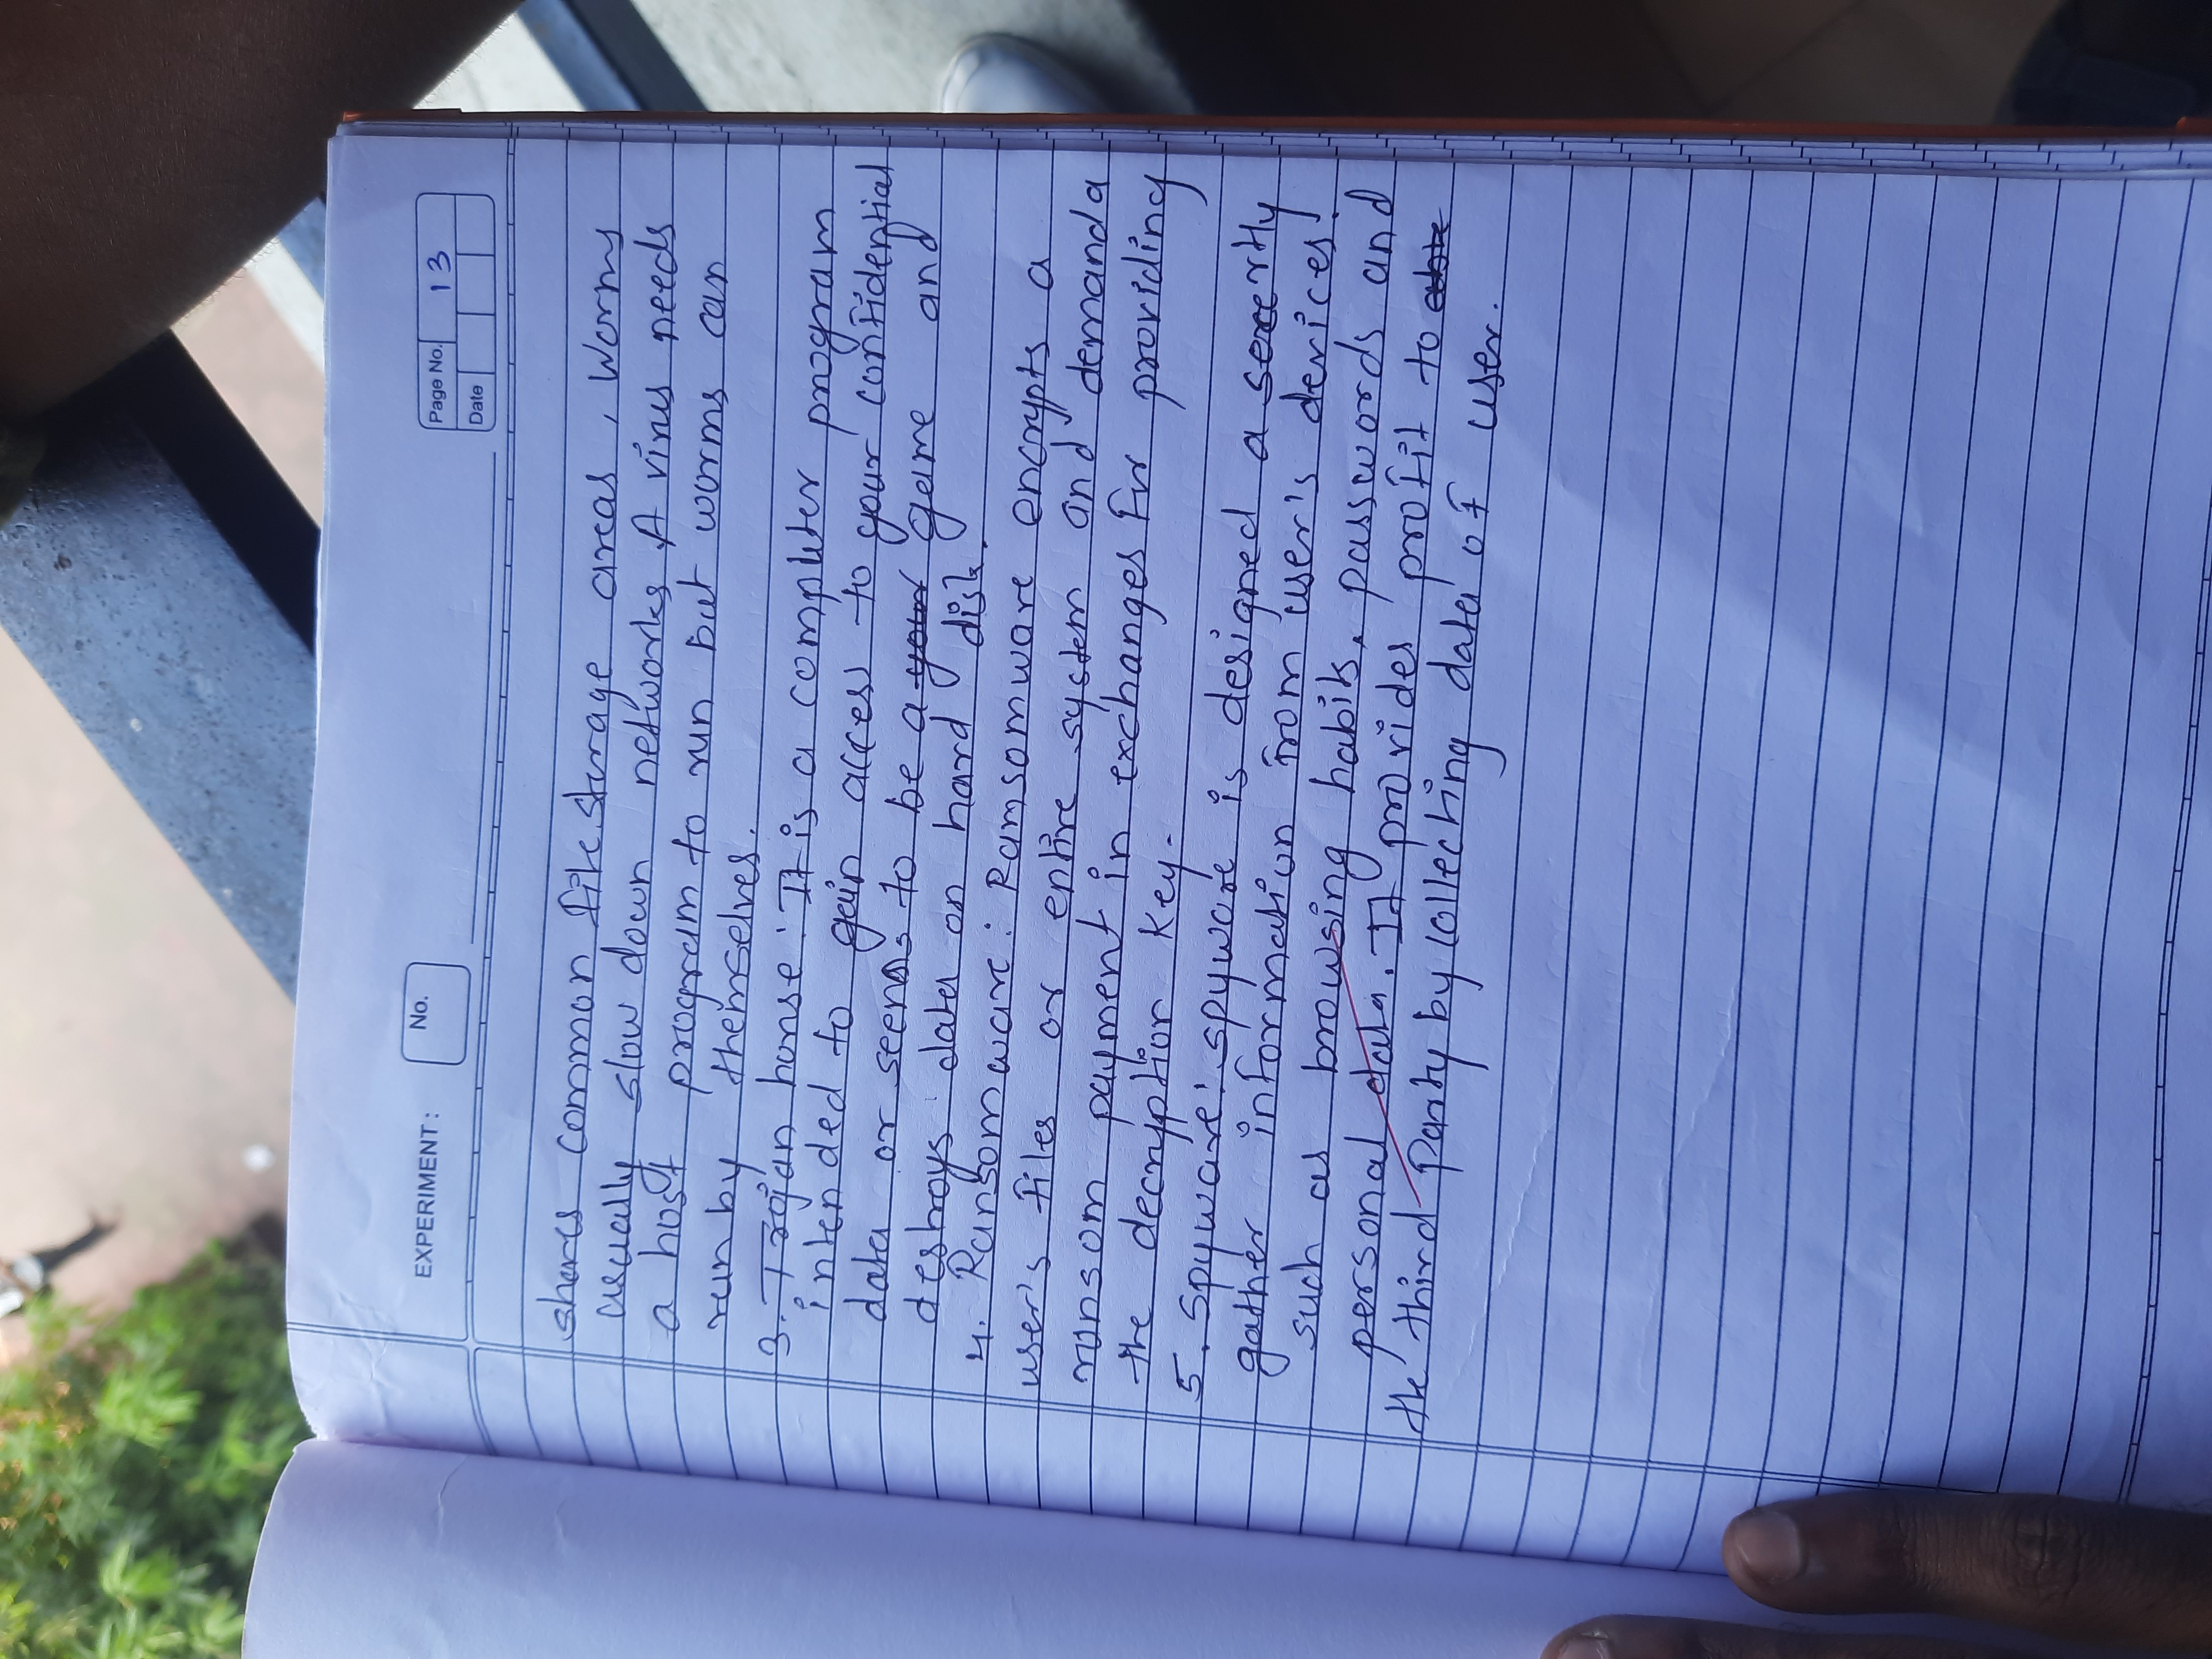 EXPERIMENT : No.
Page No. 13
Date
shares common file storage areas, Worms
usually slow down networks. A virus needs
a host program to run but worms can
run by themselves.
3. Trojan honse: It is a computer program
intended to gain access to your confidential
data or seems to be a your game and
destroys data on hard disk.
4. Ransomware: Ramsomware encrypts a
user's files or entire system and demand a
ransom payment in exchanges for providing
the decryption key.
5. Spyware: spyware is designed a secertly
gather information from user's devices.
such as browsing habits, passwords and
personal data. It provides profit to
the third party by collecting data of user.